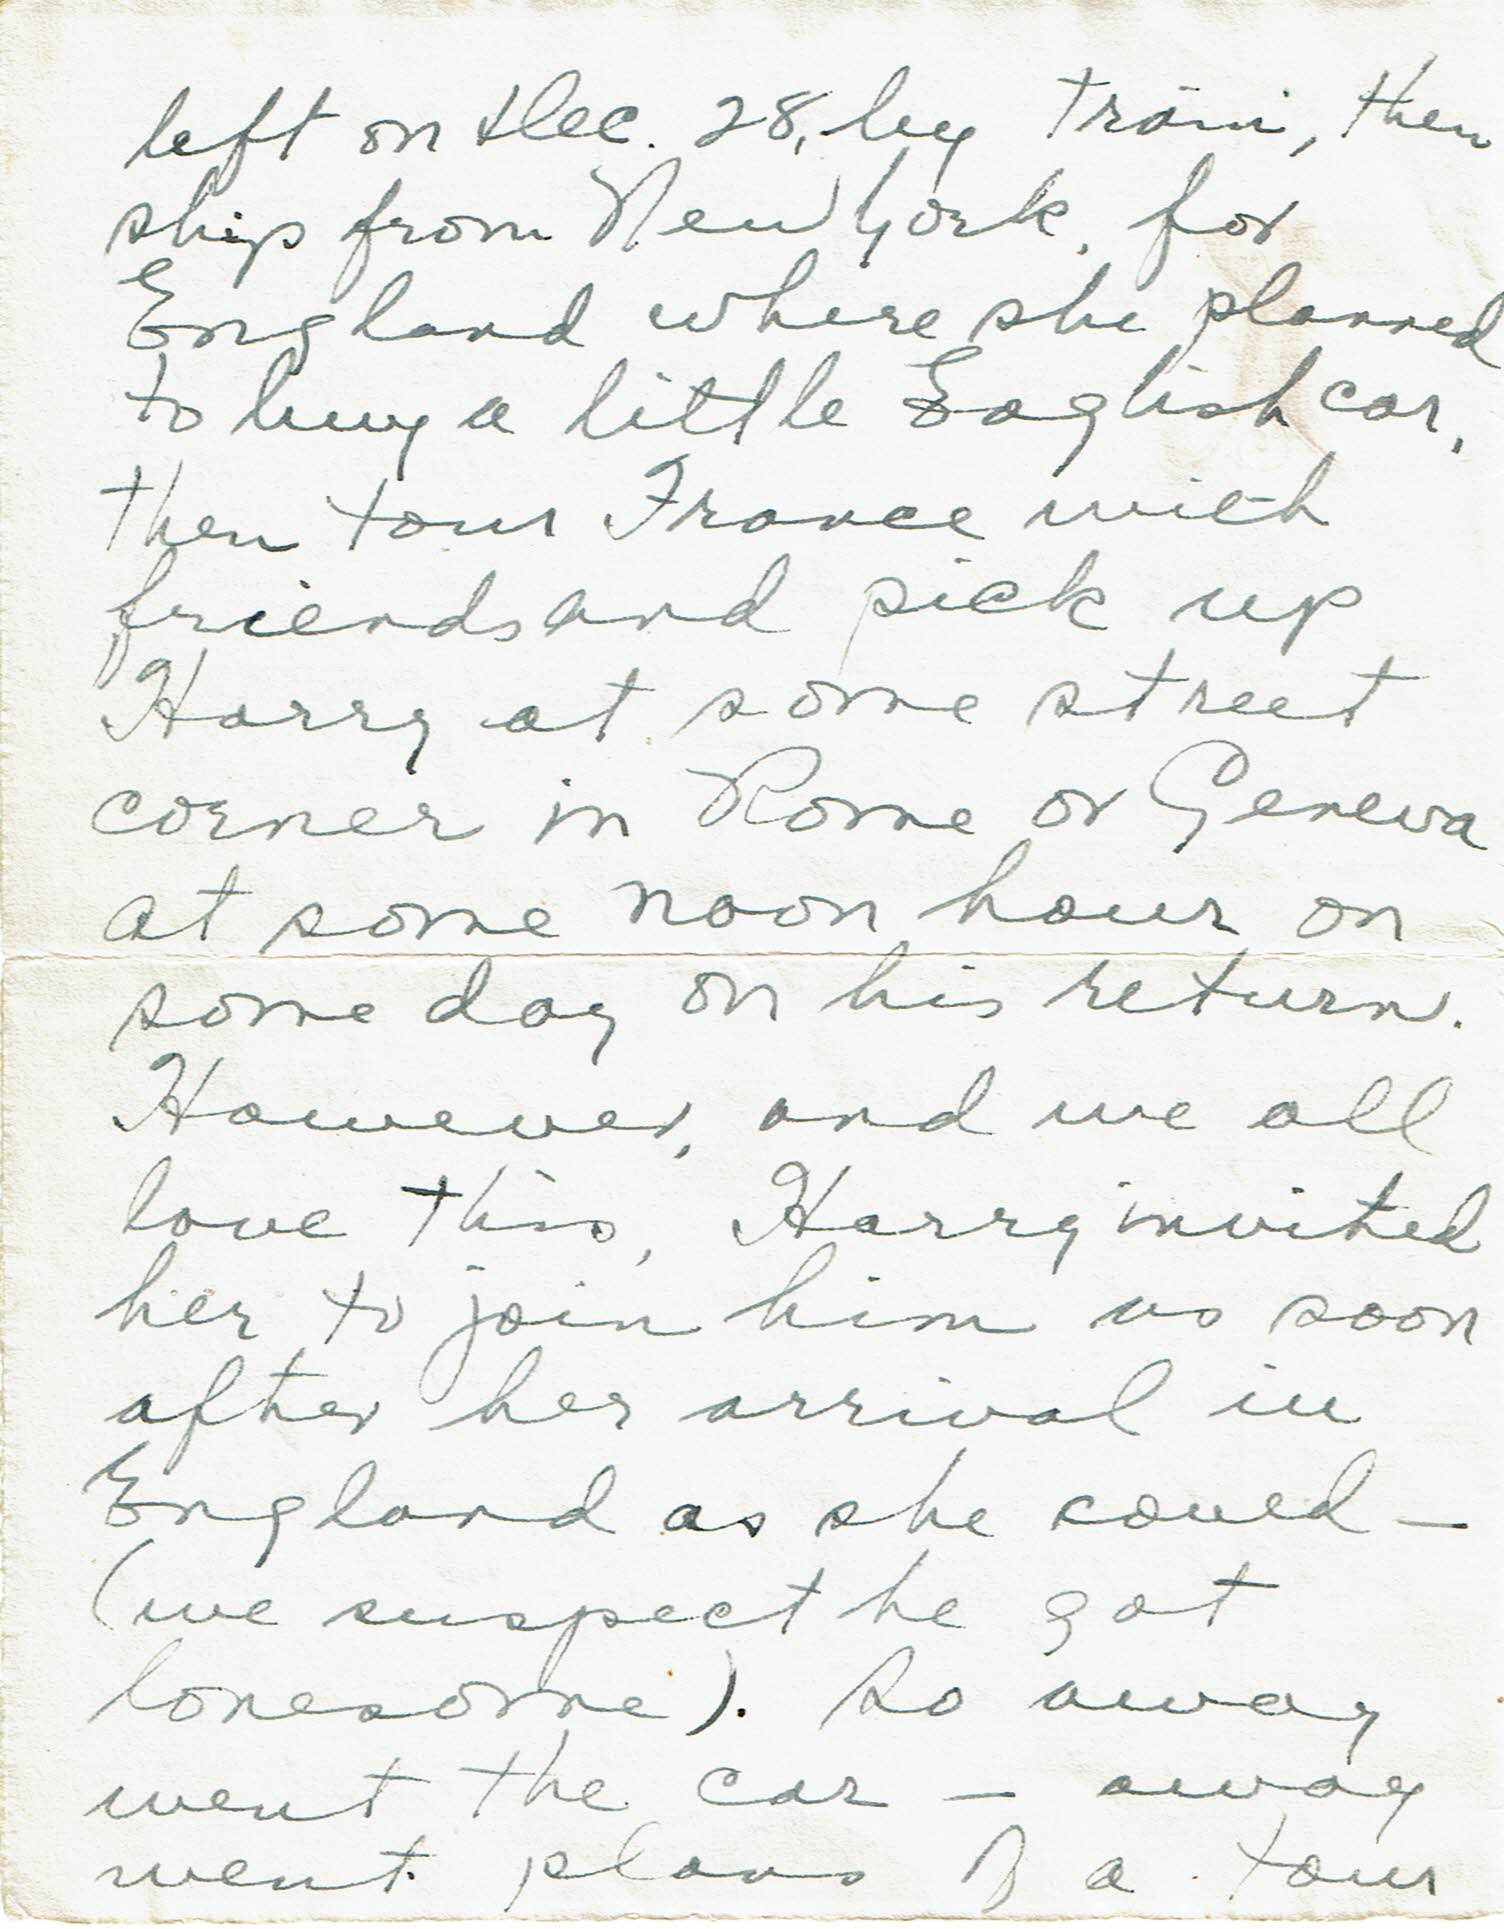 left on Dec. 28, by train, then
ship from New York, for
England where she planned
to buy a little English car,
then tour France with
friends and pick up
Harry at some street
corner in Rome or Geneva
at some noon hour on
some day on his return.
However, and we all
love this, Harry invited
her to join him as soon
after her arrival in
England as she could —
(we suspect he got
lonesome). So away
went the car — away
went plans of a tour